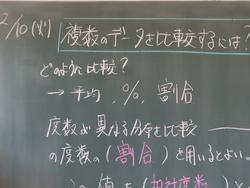 2/10(火) 複数のデータを比較するには?
どのように比較?
→ 平均, %, 割合
度数が異なる分布を比較
の度数の(割合)を用いるとよい。